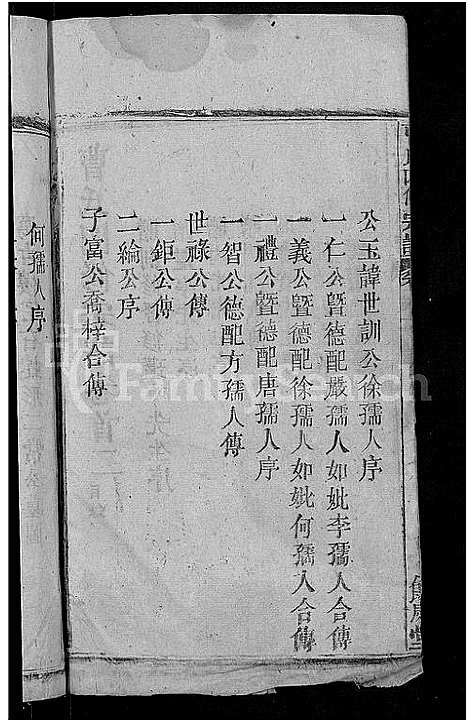 公玉諱世訓公徐孺人序
一仁公暨德配嚴孺人如妣李孺人合傳
一義公暨德配徐孺人如妣何孺人合傳
一禮公暨德配唐孺人序
一智公德配方孺人傳
世祿公傳
一鉅公傳
二綸公序
子富公喬梓合傳
何孺人序
FamilySearch